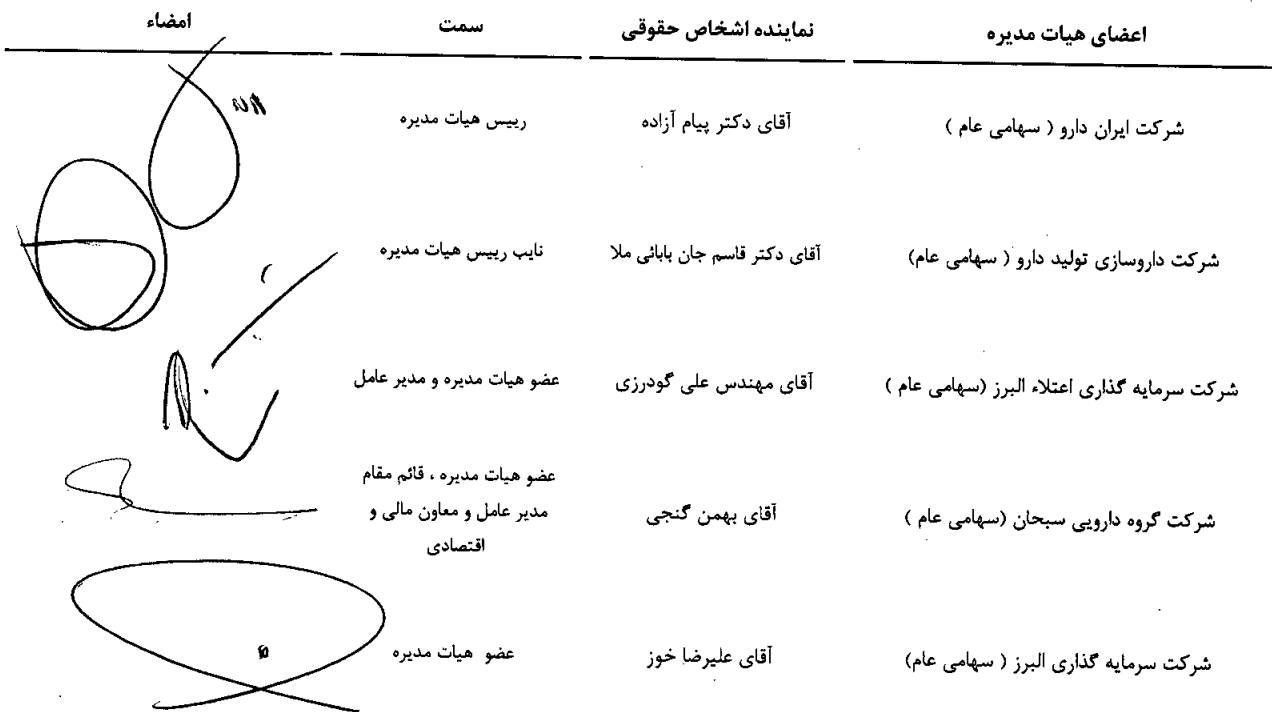 اعضای هیات مدیره نماینده اشخاص حقوقی سمت امضاء
شرکت ایران دارو ( سهامی عام ) آقای دکتر پیام آزاده رییس هیات مدیره
شرکت داروسازی تولید دارو ( سهامی عام) آقای دکتر قاسم جان بابائی ملا نایب رییس هیات مدیره
شرکت سرمایه گذاری اعتلاء البرز (سهامی عام ) آقای مهندس علی گودرزی عضو هیات مدیره و مدیر عامل
شرکت گروه دارویی سبحان (سهامی عام ) آقای بهمن گنجی عضو هیات مدیره ، قائم مقام
مدیر عامل و معاون مالی و
اقتصادی
شرکت سرمایه گذاری البرز ( سهامی عام) آقای علیرضا خوز عضو هیات مدیره